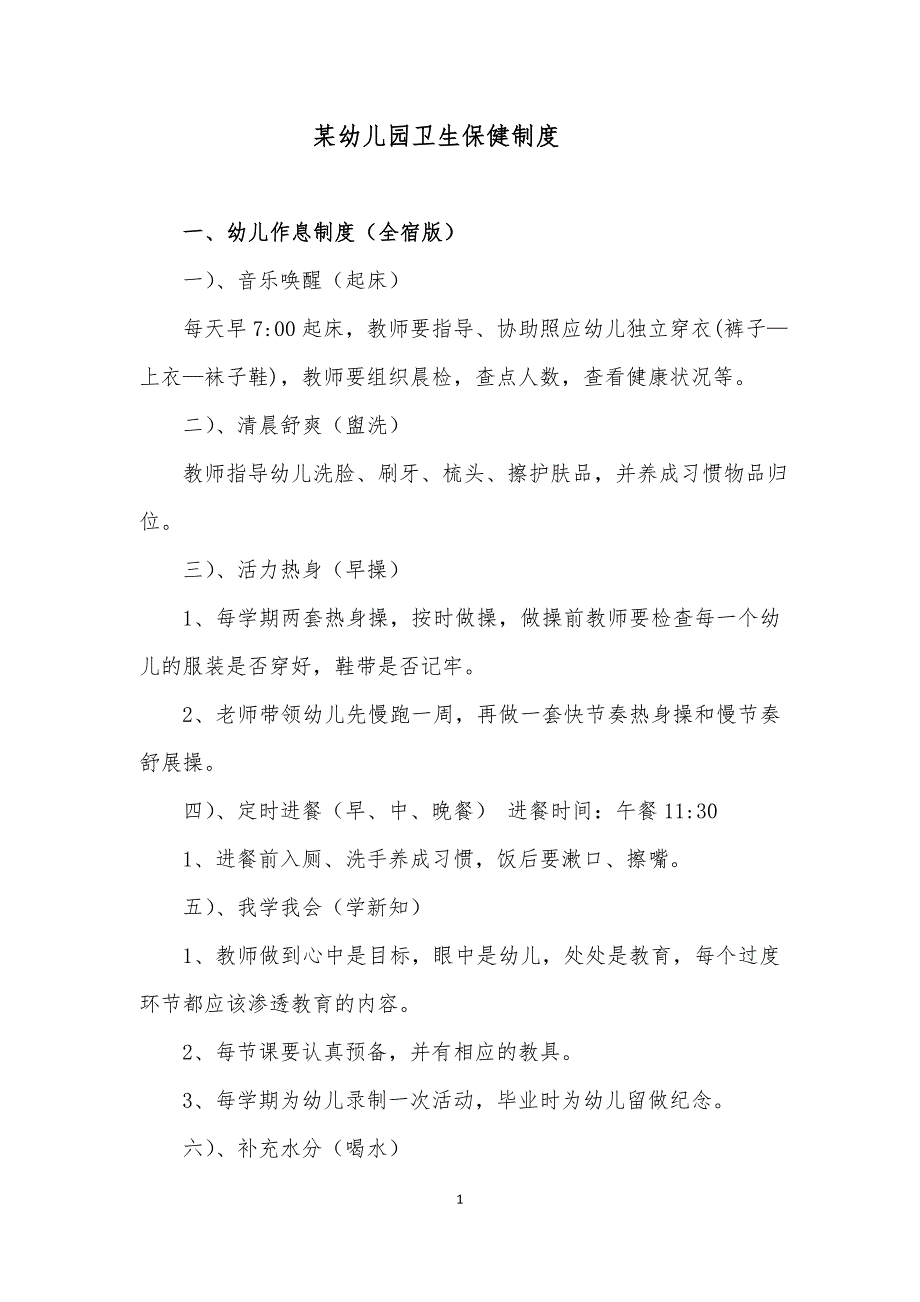 某幼儿园卫生保健制度
一、幼儿作息制度（全宿版）
一）、音乐唤醒（起床）
每天早 7:00 起床，教师要指导、协助照应幼儿独立穿衣(裤子—
上衣—袜子鞋)，教师要组织晨检，查点人数，查看健康状况等。
二）、清晨舒爽（盥洗）
教师指导幼儿洗脸、刷牙、梳头、擦护肤品，并养成习惯物品归
位。
三）、活力热身（早操）
1、每学期两套热身操，按时做操，做操前教师要检查每一个幼
儿的服装是否穿好，鞋带是否记牢。
2、老师带领幼儿先慢跑一周，再做一套快节奏热身操和慢节奏
舒展操。
四）、定时进餐（早、中、晚餐） 进餐时间：午餐 11:30
1、进餐前入厕、洗手养成习惯，饭后要漱口、擦嘴。
五）、我学我会（学新知）
1、教师做到心中是目标，眼中是幼儿，处处是教育，每个过度
环节都应该渗透教育的内容。
2、每节课要认真预备，并有相应的教具。
3、每学期为幼儿录制一次活动，毕业时为幼儿留做纪念。
六）、补充水分（喝水）
1